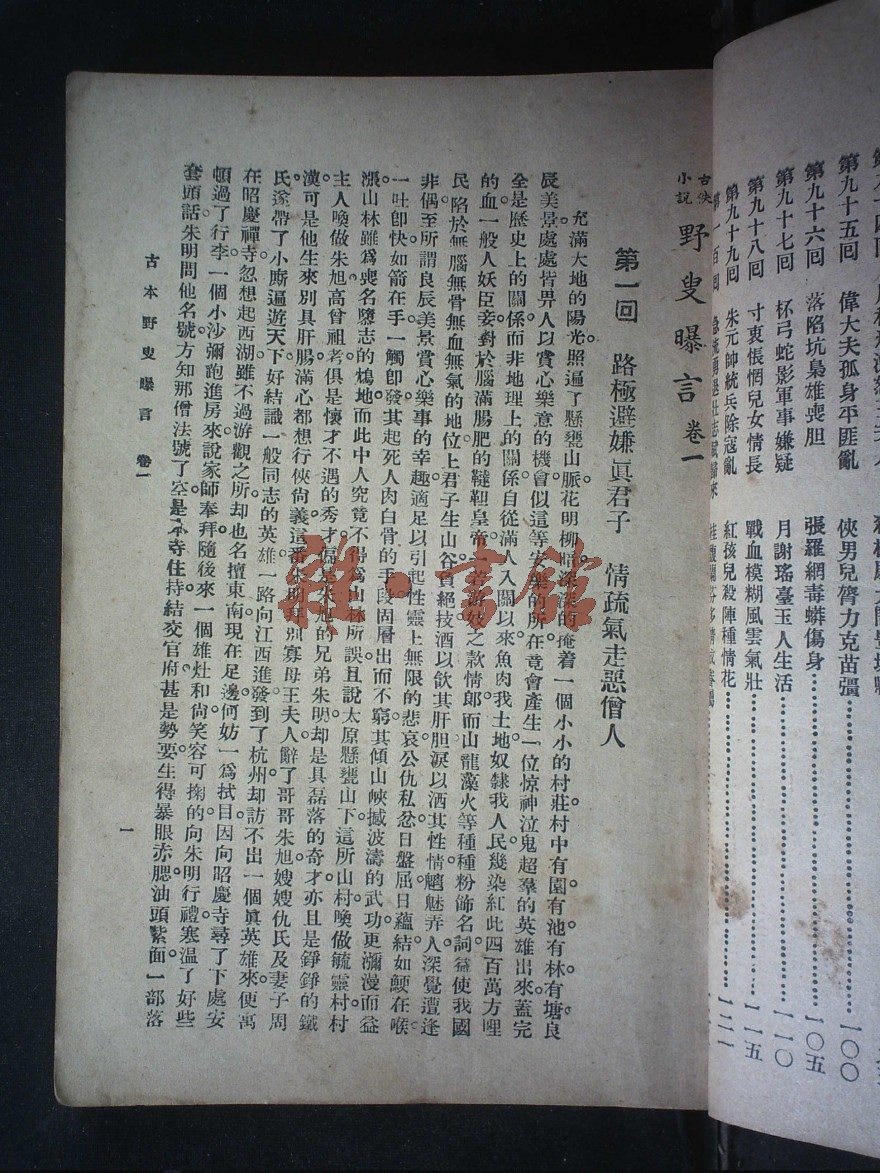 第九十五回　偉大夫孤身平匪亂　俠男兒膂力克苗彊……一〇〇
第九十六回　落陷坑梟雄喪胆　張羅網毒蟒傷身……一〇五
第九十七回　杯弓蛇影軍事嫌疑　月謝瑤臺玉人生活……一一〇
第九十八回　寸衷悵惘兒女情長　戰血模糊風雲氣壯……一一五
第九十九回　朱元帥統兵除寇亂　紅孩兒殺陣種情花……一二一
第一百回　急流勇退壯志賦歸來
古俠小說　野叟曝言　卷一
第一回　路極避嫌眞君子　情疏氣走惡僧人
充滿大地的陽光。照遍了懸甕山脈。花明柳暗。深深的掩着一個小小的村莊。村中有園。有池。有林。有塘。良
辰美景。處處皆畀人以賞心樂意的機會。似這等安樂的所在。竟會產生一位惊神泣鬼超羣的英雄出來。蓋完
全是歷史上的關係。而非地理上的關係。自從滿人入關以來。魚肉我土地。奴隸我人民。幾染紅此四百萬方哩
的血。一般人妖臣妾。對於腦滿腸肥的韃靼皇帝。若游妓之款情郎。而山龍藻火等種種粉飾名詞。益使我國
民陷於無腦無骨無血無氣的地位上。君子生山谷。負絕技。酒以飲其肝胆。淚以洒其性情。魑魅弄人。深覺遭逢
非偶。至所謂良辰美景賞心樂事的幸趣。適足以引起性靈上無限的悲哀。公仇私忿。日盤屈日蘊結。如鯁在喉。
一吐卽快。如箭在手。一觸卽發。其起死人肉白骨的手段。固層出而不窮。其傾山峽撼波濤的武功。更瀰漫而益
漲。山林雖爲喪名墮志的鴆地。而此中人究竟不得爲山林所誤。且說太原懸甕山下。這所山村。喚做毓靈村。村
主人喚做朱旭。高曾祖考。俱是懷才不遇的秀才。偏是朱旭的兄弟朱明。却是具磊落的奇才。亦且是錚錚的鐵
漢。可是他生來別具肝腸。滿心都想行俠尙義。這番朱明拜别寡母王夫人。辭了哥哥朱旭。嫂嫂仇氏。及妻子周
氏。遂帶了小廝。遍遊天下。好結識一般同志的英雄。一路向江西進發。到了杭州。却訪不出一個眞英雄來。便寓
在昭慶禪寺。忽想起西湖雖不過游觀之所。却也名擅東南。現在足邊。何妨一爲拭目。因向昭慶寺尋了下處。安
頓過了行李。一個小沙彌跑進房來。說家師奉拜。隨後來一個雄灶和尙。笑容可掬的向朱明行禮。寒温了好些
套頭話。朱明問他名號。方知那僧法號了空。是本寺住持。結交官府。甚是勢要。生得暴眼赤腮。油頭紫面。一部落
古本野叟曝言　卷一
一
雜·書館